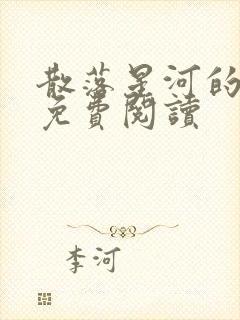 散落星河的
免費閱讀
李河